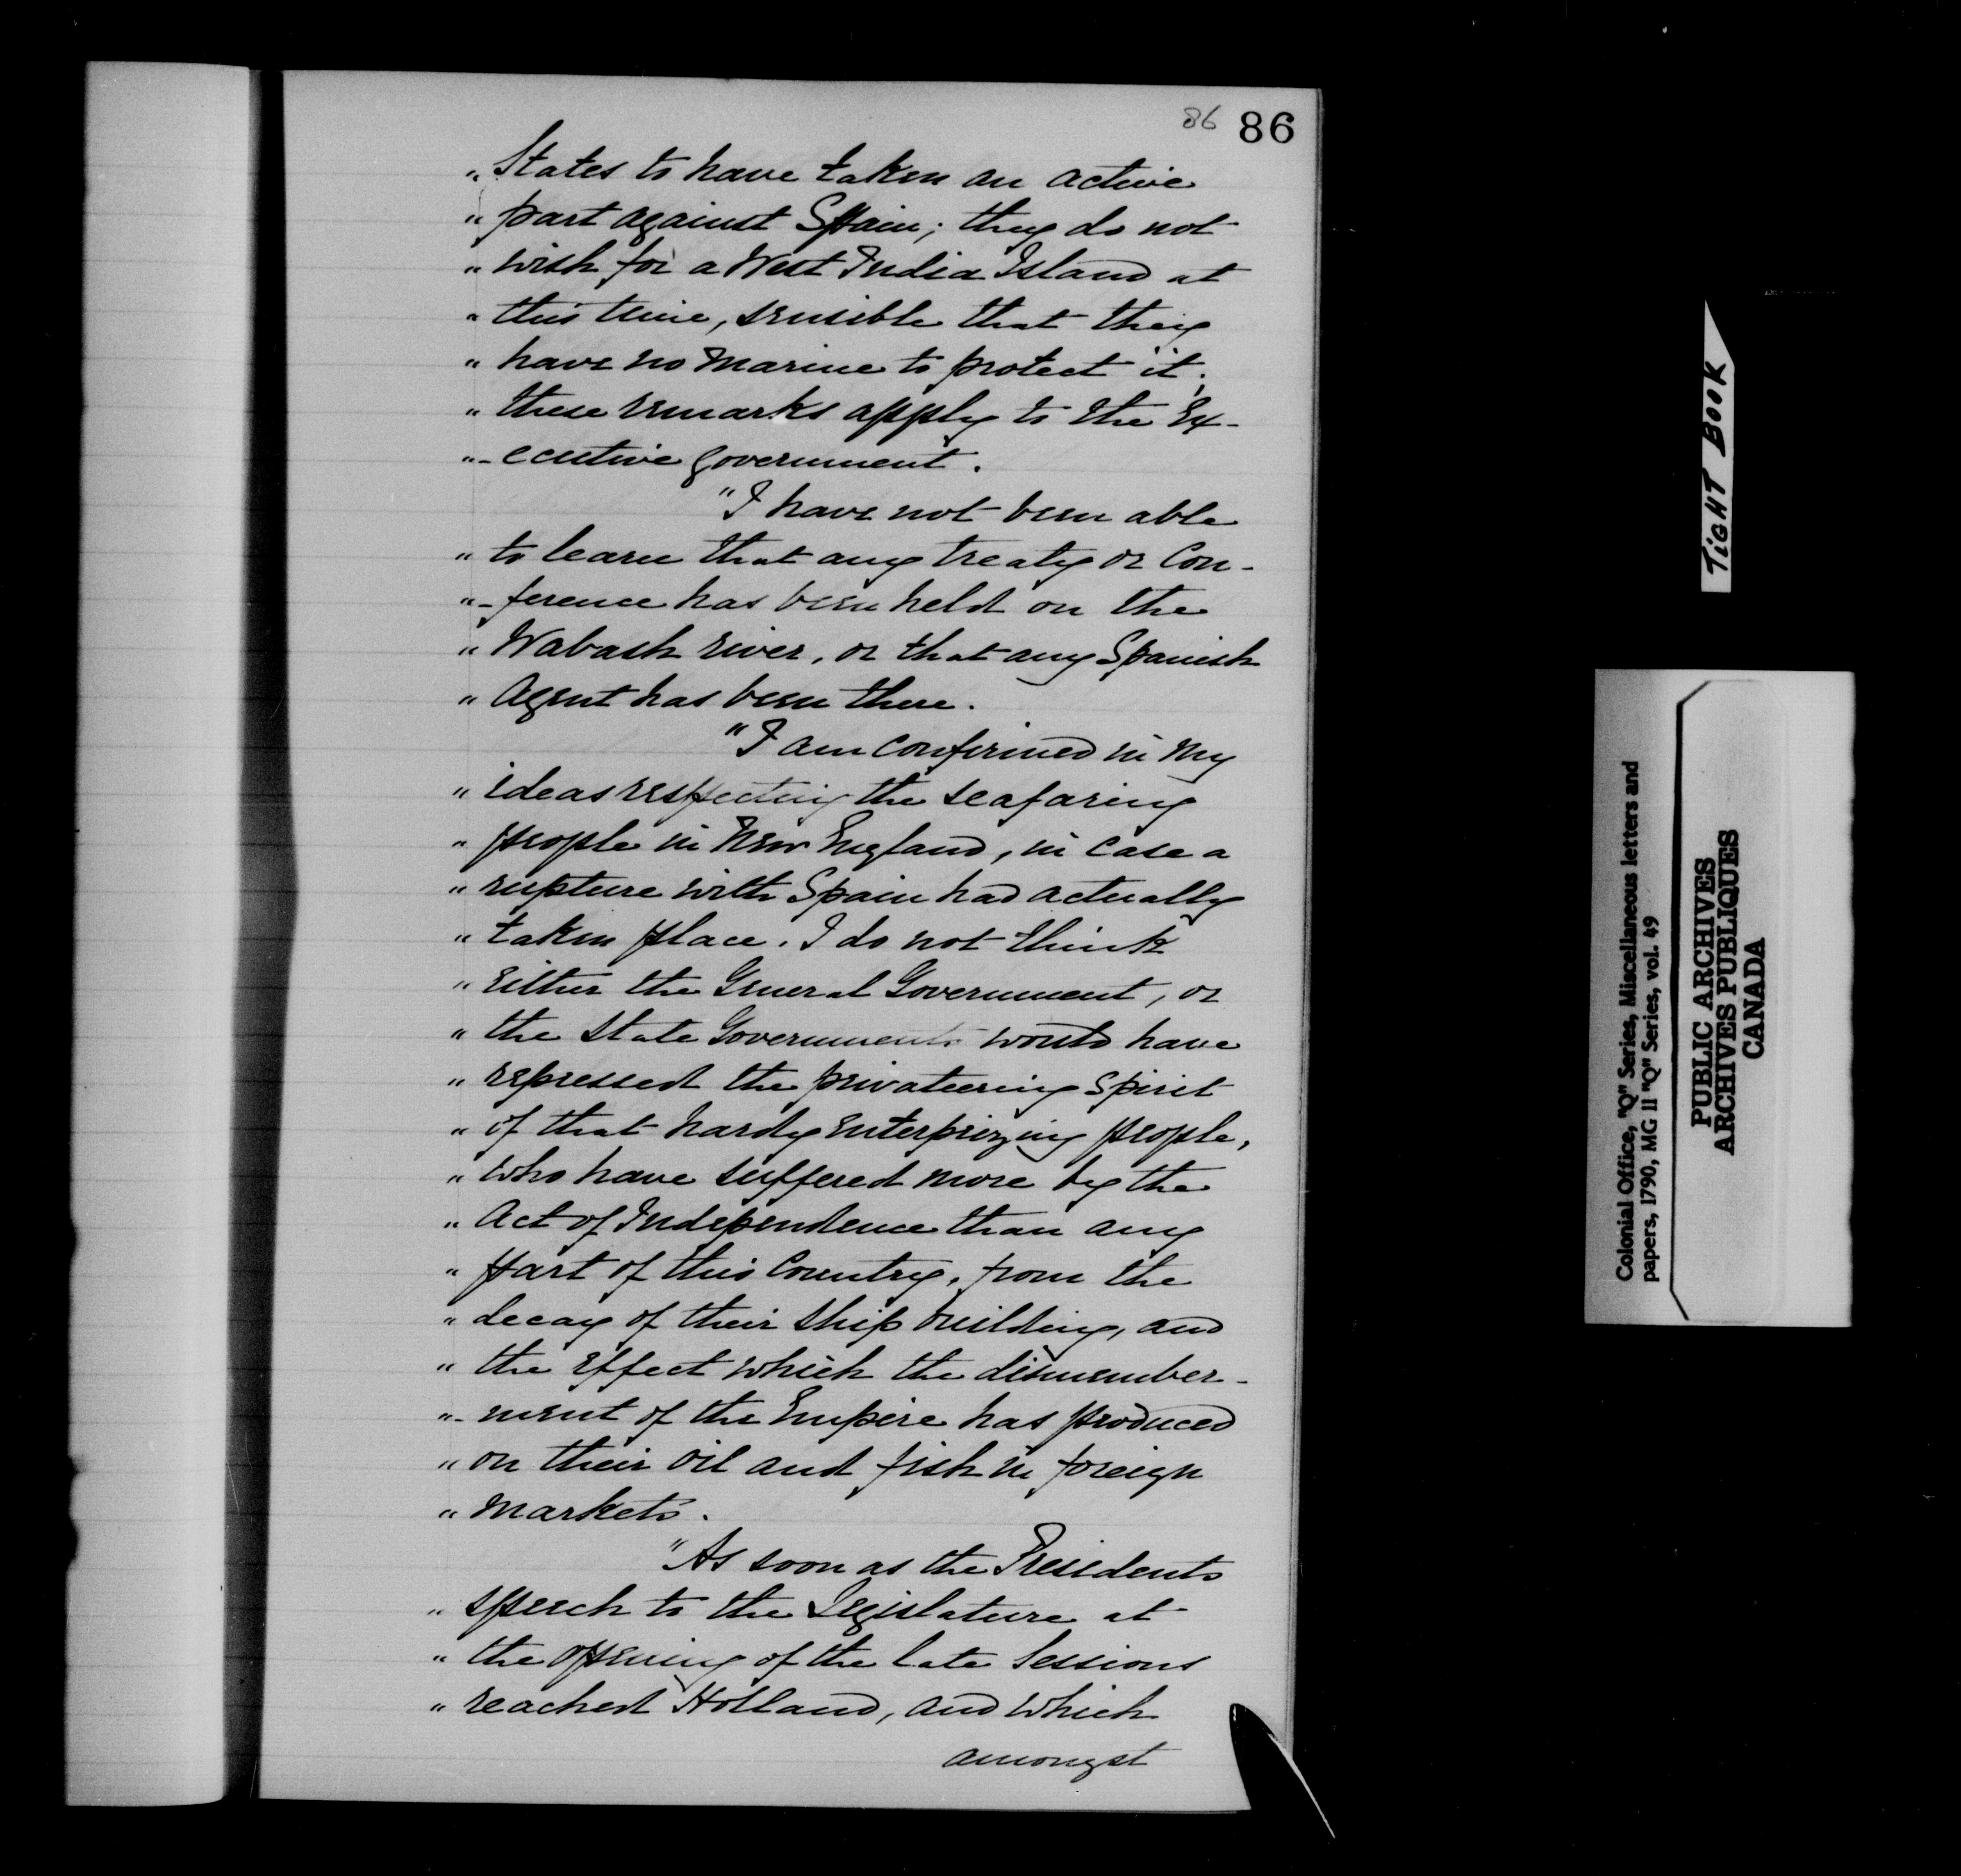 86 86
" States to have taken an active
" part against Spain; they do not
" wish for a West India Island at
" this time, sensible that they
" have no marine to protect it;
" these remarks apply to the Ex-
"-ecutive Government.
"I have not been able
" to learn that any treaty or Con-
"-ference has been held on the
" Wabash river, or that any Spanish
" Agent has been there.
"I am confirmed in my
" ideas respecting the seafaring
" people in New England, in case a
" rupture with Spain had actually
" taken place. I do not think
" either the General Government, or
" the State Governments would have
" repressed the privateering spirit
" of that hardy enterprizing people,
" who have suffered more by the
" Act of Independence than any
" part of this Country, from the
" decay of their ship building, and
" the effect which the dismember-
"-ment of the Empire has produced
" on their oil and fish in foreign
" markets.
"As soon as the Presidents
" speech to the Legislature at
" the opening of the late Sessions
" reached Holland, and which
amongst
TIGHT BOOK
Colonial Office, "Q" Series, Miscellaneous letters and
papers, 1790, MG 11 "Q" Series, vol. 49
PUBLIC ARCHIVES
ARCHIVES PUBLIQUES
CANADA